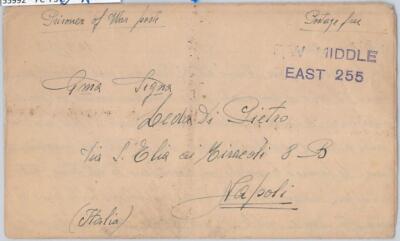 Prisoner of War post Postage free
P.W. MIDDLE
EAST 255
Gma Signa
Leda Di Pietro
Via S. Elia ai Miracoli 8 B
Napoli
(Italia)